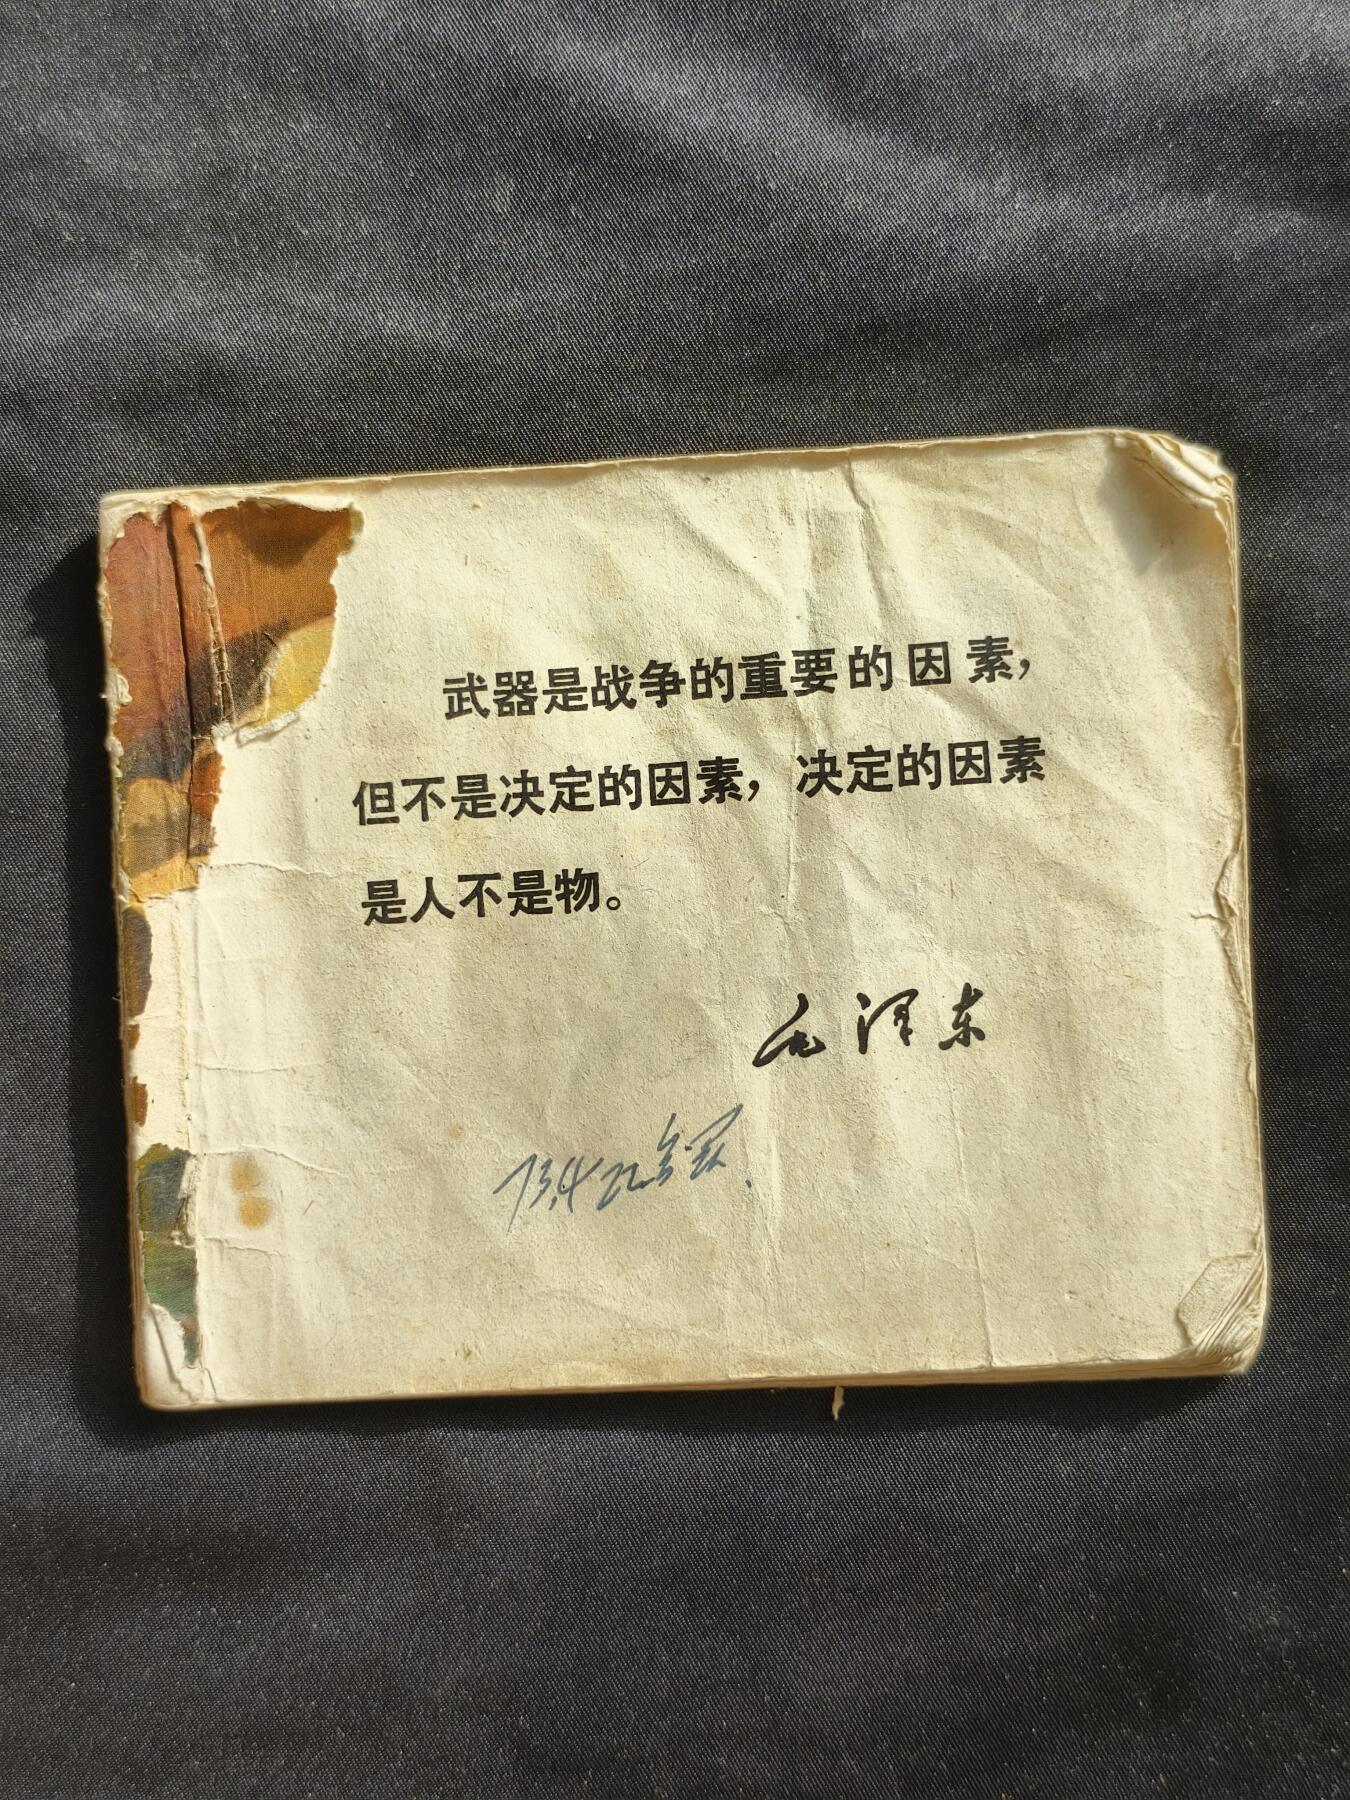 武器是战争的重要的因素，
但不是决定的因素，决定的因素
是人不是物。
毛泽东
73.4.22